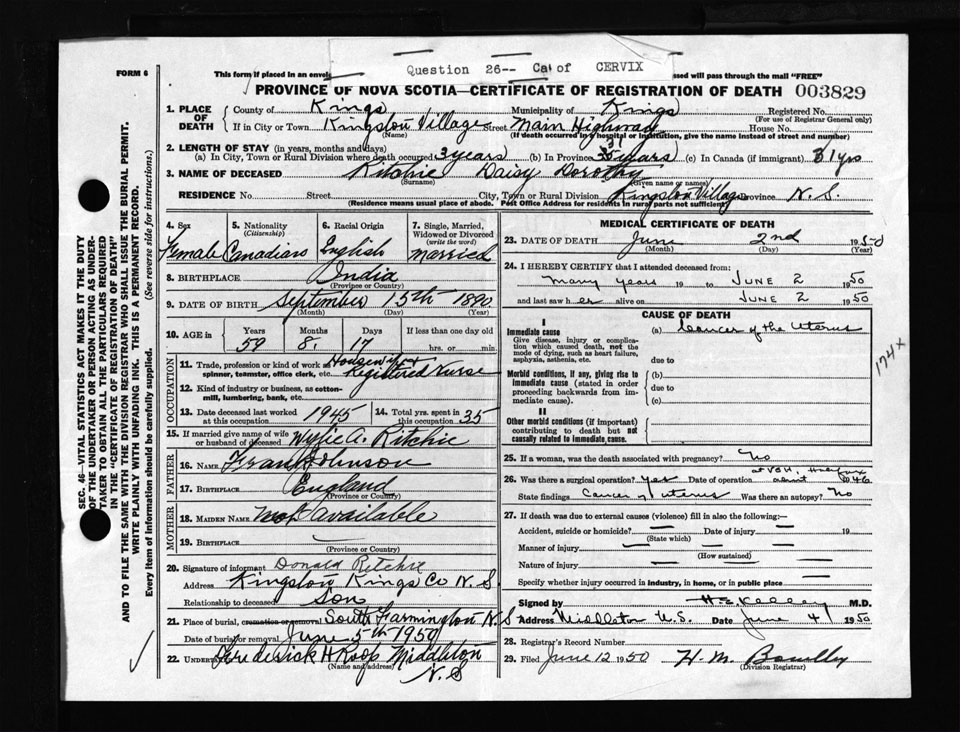 Question 26-- Ca of CERVIX
FORM 6
This form if placed in an envelo
ssed will pass through the mail "FREE"
PROVINCE OF NOVA SCOTIA—CERTIFICATE OF REGISTRATION OF DEATH 003829
1. PLACE OF DEATH
County of Kings Municipality of Kings Registered No.
(For use of Registrar General only)
If in City or Town Kingston Village Street Main Highway House No.
(Name) (If death occurred in a hospital or institution, give the name instead of street and number)
2. LENGTH OF STAY (in years, months and days)
(a) In City, Town or Rural Division where death occurred 3 years (b) In Province 31 years (c) In Canada (if immigrant) 31 yrs
3. NAME OF DECEASED Ritchie Daisy Dorothy
(Surname) (Given name or names)
RESIDENCE No. Street City, Town or Rural Division Kingston Village Province N. S.
(Residence means usual place of abode. Post Office Address for residents in rural parts not sufficient)
4. Sex Female
5. Nationality (Citizenship) Canadian
6. Racial Origin English
7. Single, Married, Widowed or Divorced (write the word) Married
8. BIRTHPLACE India
(Province or Country)
9. DATE OF BIRTH September 15th 1890
(Month) (Day) (Year)
10. AGE in Years Months Days If less than one day old
59 8 17 hrs. or min.
OCCUPATION
11. Trade, profession or kind of work as spinner, teamster, office clerk, etc. Registered Nurse
12. Kind of industry or business, as cotton-mill, lumbering, bank, etc.
13. Date deceased last worked at this occupation 1945
14. Total yrs. spent in this occupation 35
15. If married give name of wife or husband of deceased Wylie A. Ritchie
FATHER
16. NAME Frank Johnson
17. BIRTHPLACE England
(Province or Country)
MOTHER
18. MAIDEN NAME Not available
19. BIRTHPLACE
(Province or Country)
20. Signature of informant Donald Ritchie
Address Kingston Kings Co N. S.
Relationship to deceased Son
21. Place of burial, cremation or removal South Farmington N S
Date of burial or removal June 5th 1950
22. UNDERTAKER Frederick H Roop Middleton
(Name and address) N. S
MEDICAL CERTIFICATE OF DEATH
23. DATE OF DEATH June 2nd 1950
(Month) (Day) (Year)
24. I HEREBY CERTIFY that I attended deceased from:
many years 19 to JUNE 2 1950
and last saw her alive on JUNE 2 1950
CAUSE OF DEATH
I
Immediate cause (a) Cancer of the Uterus
Give disease, injury or complication which caused death, not the mode of dying, such as heart failure, asphyxia, asthenia, etc. due to
Morbid conditions, if any, giving rise to immediate cause (stated in order proceeding backwards from immediate cause). (b)
due to
(c)
II
Other morbid conditions (if important) contributing to death but not causally related to immediate cause.
174 x
25. If a woman, was the death associated with pregnancy? No
at VGH, Halifax
26. Was there a surgical operation? Yes Date of operation about 1946
State findings Cancer of uterus Was there an autopsy? No
27. If death was due to external causes (violence) fill in also the following:—
Accident, suicide or homicide? — Date of injury — 19
(State which)
Manner of injury
(How sustained)
Nature of injury
Specify whether injury occurred in industry, in home, or in public place
Signed by H. E. Kelley M.D.
Address Middleton N. S. Date June 4 1950
28. Registrar's Record Number
29. Filed June 12 1950 H. M.
(Division Registrar)
SEC. 46—VITAL STATISTICS ACT MAKES IT THE DUTY OF THE UNDERTAKER OR PERSON ACTING AS UNDERTAKER TO OBTAIN ALL THE PARTICULARS REQUIRED IN THE "CERTIFICATE OF REGISTRATION OF DEATH" AND TO FILE THE SAME WITH THE DIVISION REGISTRAR WHO SHALL ISSUE THE BURIAL PERMIT.
WRITE PLAINLY WITH UNFADING INK. THIS IS A PERMANENT RECORD.
Every item of information should be carefully supplied. (See reverse side for instructions.)